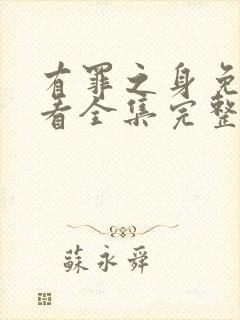 有罪之身免
看全集完整
蘇永舜